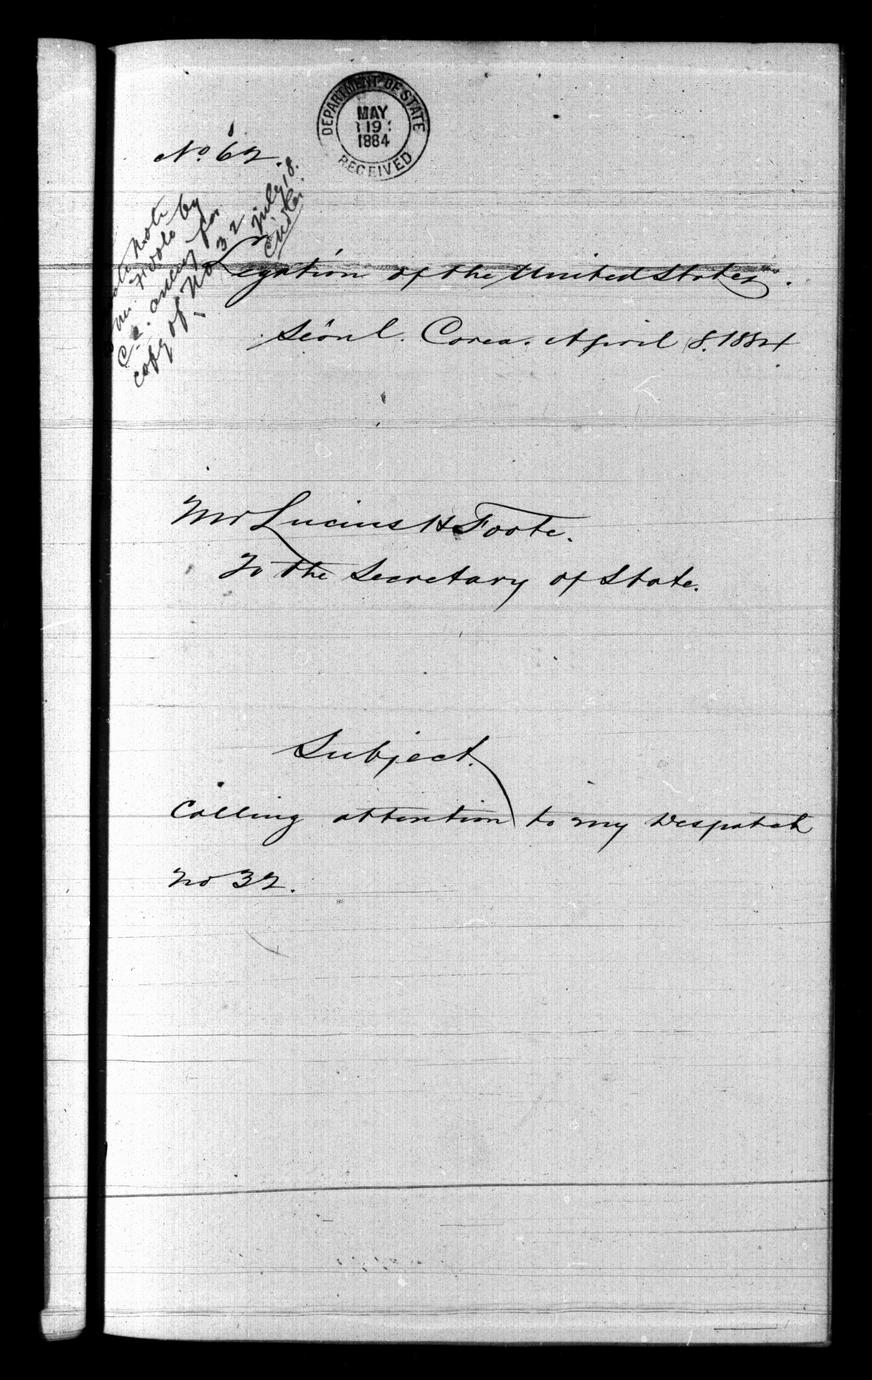 DEPARTMENT OF STATE
MAY
19
1884
RECEIVED
No 62.
note
by
for
copy of No 32 July 18.
Legation of the United States.
Séoul. Corea. April 8. 1884
Mr Lucius H Foote.
To the Secretary of State.
Subject.
Calling attention to my Despatch
No 32.